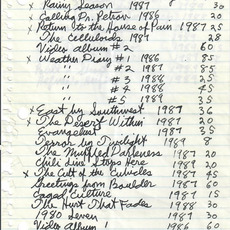 x Rainy Season 1987 30
x Calling Dr. Petrov 1986 20
x Return to the House of Pain 1987 25
The Celluloids 1986 28
Video album #2 60
x Weather Diary #1 1986 85
" #2 1987 85
" #3 1988 25
" #4 1988 35
" #5 1989 35
x East by Southwest 1987 30
x The Desert Within 1987 20
Evangelust 1987 35
Terror by Twilight 1987 8
The Muffled Darkness 1987 20
Chili line Stops Here 1989 20
x The Cult of the Cubicles 1987 45
Greetings from Boulder 1987 60
Food Culture 1987 15
The Hurt That Fades 1988 30
1980 Seven 1987 30
Video Album 1 1986 60